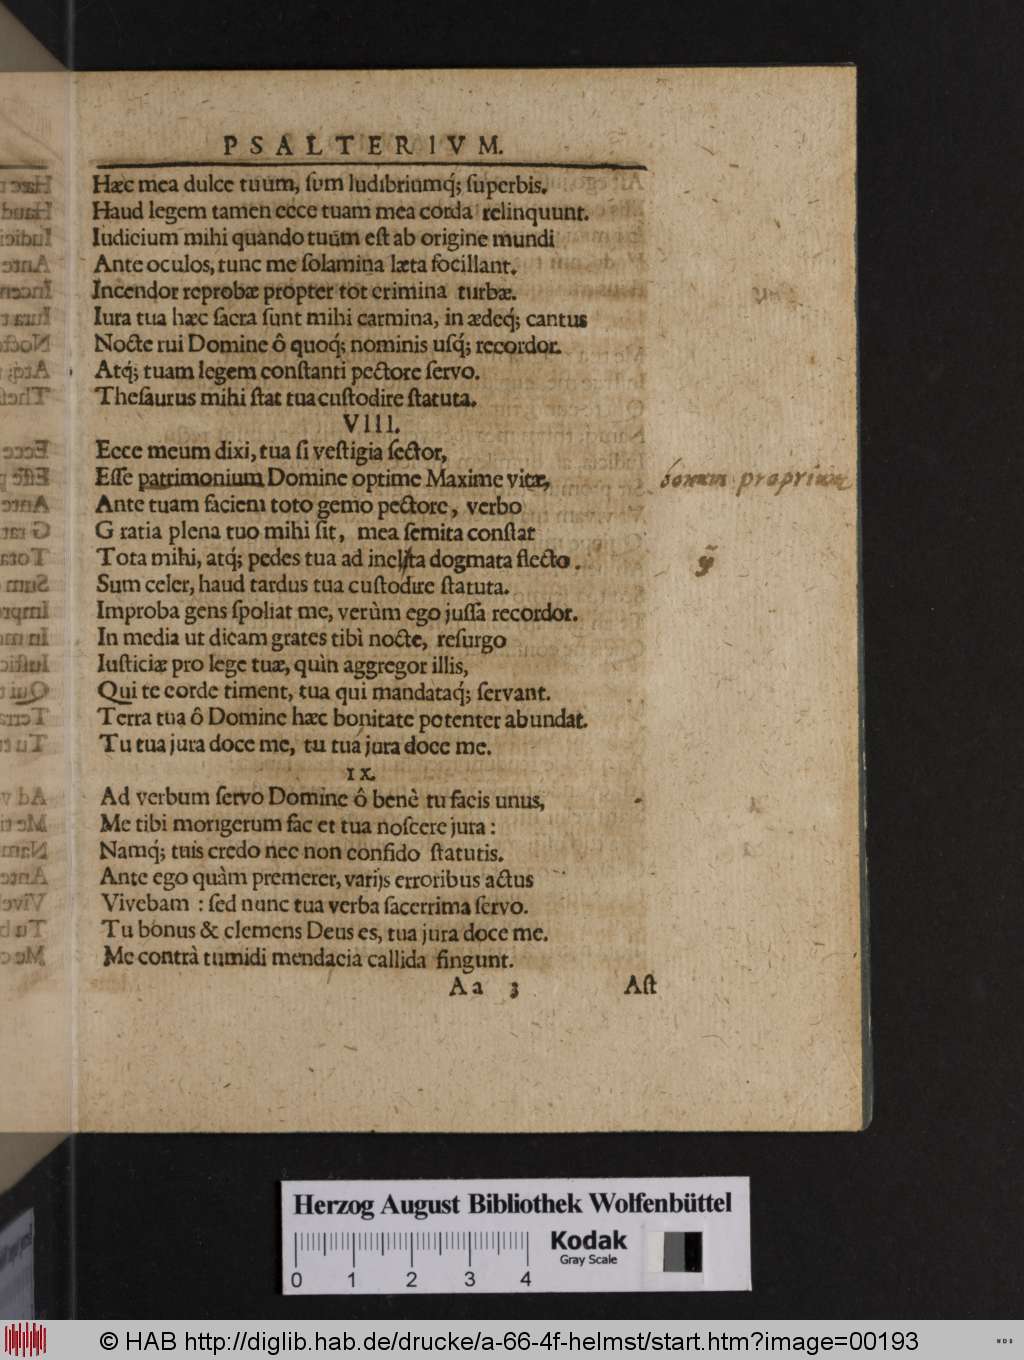 PSALTERIVM.
Hæc mea dulce tuum, ſum ludibriumq́; ſuperbis.
Haud legem tamen ecce tuam mea corda relinquunt.
Iudicium mihi quando tuum eſt ab origine mundi
Ante oculos, tunc me ſolamina læta focillant.
Incendor reprobæ propter tot crimina turbæ.
Iura tua hæc ſacra ſunt mihi carmina, in ædeq́; cantus
Nocte rui Domine ô quoq́; nominis uſq́; recordor.
Atq́; tuam legem conſtanti pectore ſervo.
Theſaurus mihi ſtat tua cuſtodire ſtatuta.
VIII.
Ecce meum dixi, tua ſi veſtigia ſector,
Eſſe patrimonium Domine optime Maxime vitæ,
bonum proprium
Ante tuam faciem toto gemo pectore, verbo
G ratia plena tuo mihi ſit, mea ſemita conſtat
Tota mihi, atq́; pedes tua ad inclyta dogmata flecto.
ỹ
Sum celer, haud tardus tua cuſtodire ſtatuta.
Improba gens ſpoliat me, verùm ego juſſa recordor.
In media ut dicam grates tibì nocte, reſurgo
Iuſticiæ pro lege tuæ, quìn aggregor illis,
Qui te corde timent, tua qui mandataq́; ſervant.
Terra tua ô Domine hæc bonitate potenter abundat.
Tu tua jura doce me, tu tua jura doce me.
IX.
Ad verbum ſervo Domine ô benè tu facis unus,
Me tibi morigerum fac et tua noſcere jura:
Namq́; tuis credo nec non confido ſtatutis.
Ante ego quàm premerer, varijs erroribus actus
Vivebam : ſed nunc tua verba ſacerrima ſervo.
Tu bonus & clemens Deus es, tua jura doce me.
Me contrà tumidi mendacia callida fingunt.
Aa 3 Aſt
Herzog August Bibliothek Wolfenbüttel
Kodak
Gray Scale
0 1 2 3 4
© HAB http://diglib.hab.de/drucke/a-66-4f-helmst/start.htm?image=00193